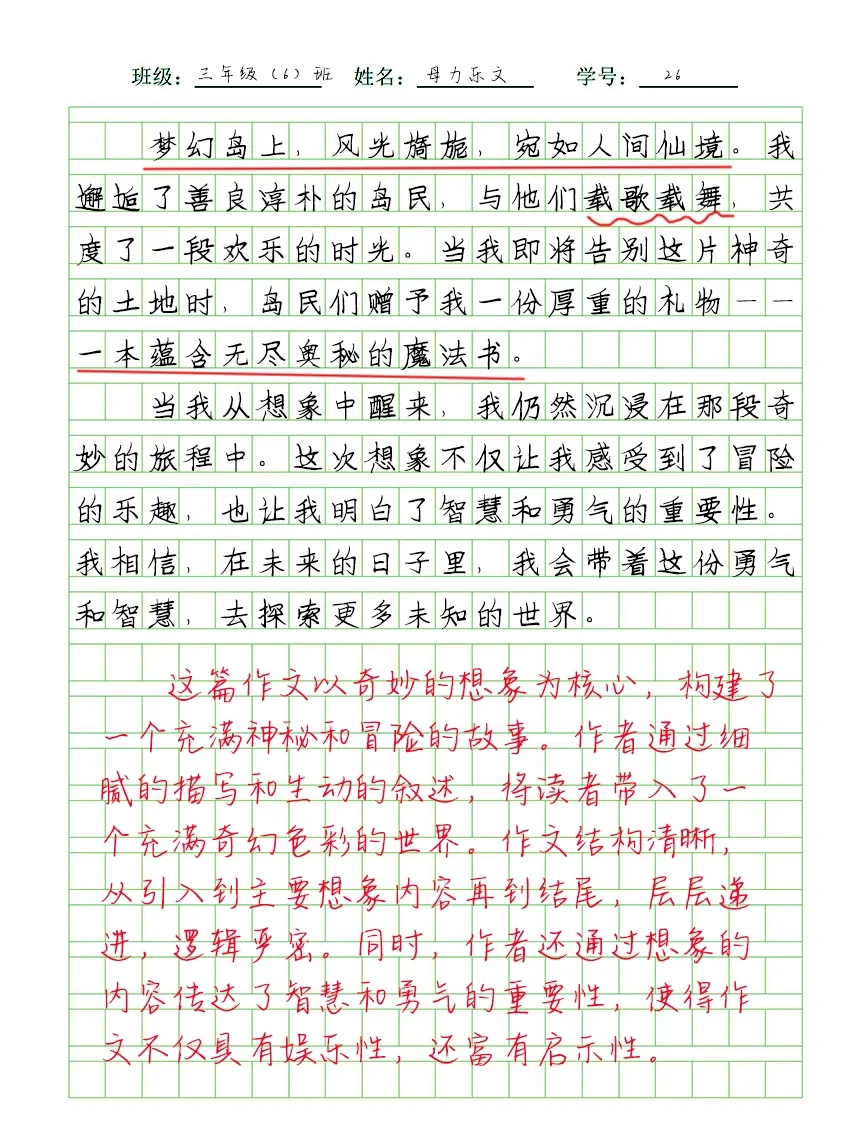 班级：三年级（6）班 姓名：母力乐文 学号：26
梦幻岛上，风光旖旎，宛如人间仙境。我
邂逅了善良淳朴的岛民，与他们载歌载舞，共
度了一段欢乐的时光。当我即将告别这片神奇
的土地时，岛民们赠予我一份厚重的礼物——
一本蕴含无尽奥秘的魔法书。
当我从想象中醒来，我仍然沉浸在那段奇
妙的旅程中。这次想象不仅让我感受到了冒险
的乐趣，也让我明白了智慧和勇气的重要性。
我相信，在未来的日子里，我会带着这份勇气
和智慧，去探索更多未知的世界。
这篇作文以奇妙的想象为核心，构建了
一个充满神秘和冒险的故事。作者通过细
腻的描写和生动的叙述，将读者带入了一
个充满奇幻色彩的世界。作文结构清晰，
从引入到主要想象内容再到结尾，层层递
进，逻辑严密。同时，作者还通过想象的
内容传达了智慧和勇气的重要性，使得作
文不仅具有娱乐性，还富有启示性。